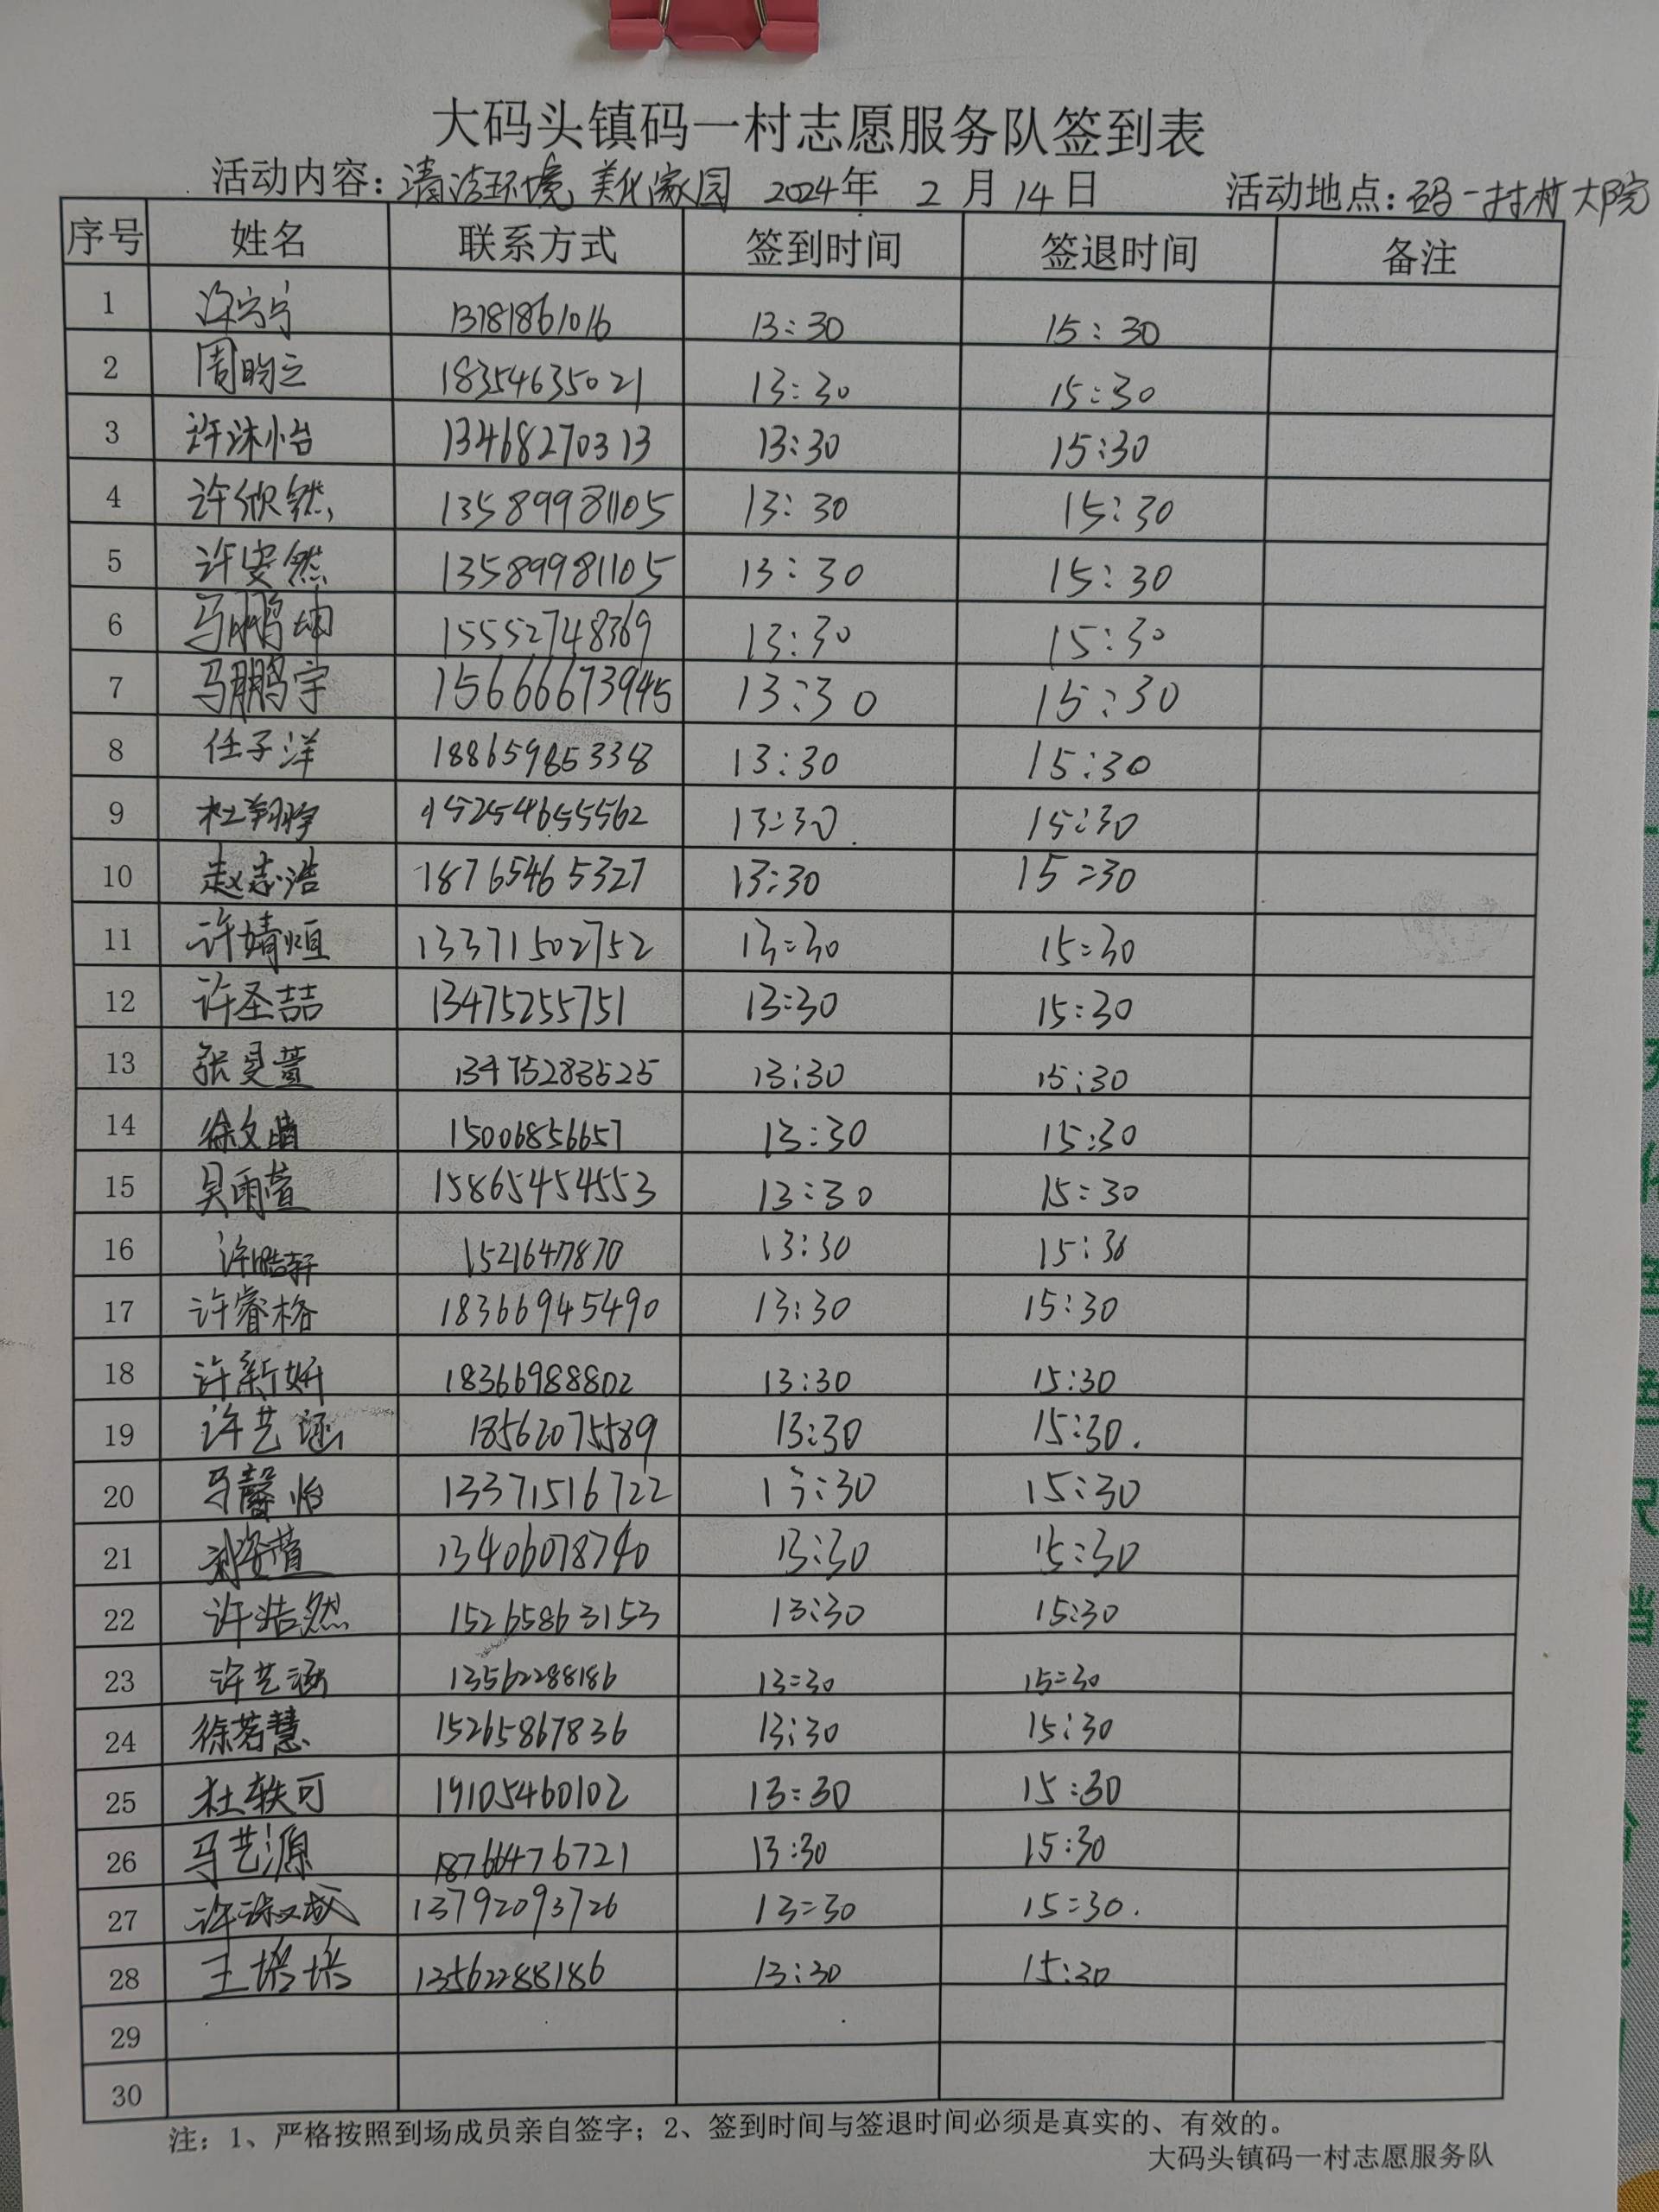 大码头镇码一村志愿服务队签到表
活动内容：清洁环境 美化家园 2024年 2 月 14 日 活动地点：码一村村大院
序号 姓名 联系方式 签到时间 签退时间 备注
1 许宁宁 13181861016 13:30 15:30
2 周昀立 18354635021 13:30 15:30
3 许沐怡 13468270313 13:30 15:30
4 许欣然 13589981105 13:30 15:30
5 许安然 13589981105 13:30 15:30
6 马鹏坤 15552748369 13:30 15:30
7 马鹏宇 15666673945 13:30 15:30
8 任子洋 18865985338 13:30 15:30
9 杜翔宇 152254655562 13:30 15:30
10 赵志浩 18765465327 13:30 15:30
11 许婧恒 13371502752 13:30 15:30
12 许圣喆 13475255751 13:30 15:30
13 张旻萱 13475283525 13:30 15:30
14 徐文 15006856657 13:30 15:30
15 吴雨萱 15865454553 13:30 15:30
16 许皓轩 13:30 15:30
17 许睿格 18366945490 13:30 15:30
18 许新妍 18366988802 13:30 15:30
19 许艺涵 18562075589 13:30 15:30.
20 马馨怡 13371516722 13:30 15:30
21 刘安萱 13406078740 13:30 15:30
22 许浩然 15265863153 13:30 15:30
23 许艺涵 13562288186 13:30 15:30
24 徐若慧 15265867836 13:30 15:30
25 杜轶可 19105460102 13:30 15:30
26 马艺源 18766476721 13:30 15:30
27 许 13792093726 13:30 15:30.
28 王培培 13562288186 13:30 15:30
29
30
注：1、严格按照到场成员亲自签字；2、签到时间与签退时间必须是真实的、有效的。
大码头镇码一村志愿服务队